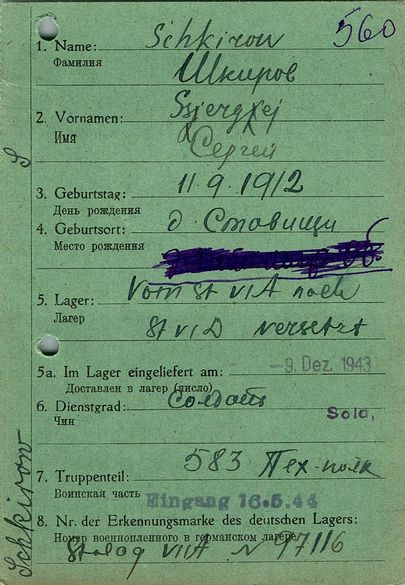 560
1. Name: Schkirow
Фамилия Шкиров
2. Vornamen: Ssjergej
Имя Сергей
3. Geburtstag: 11.9.1912
День рождения
4. Geburtsort: д. Стовищи
Место рождения
5. Lager: Vom St VI A nach
Лагер St VI D versetzt
5a. Im Lager eingeliefert am: -9. Dez. 1943
Доставлен в лагер (число)
6. Dienstgrad: Солдат
Чин Sold.
7. Truppenteil: 583 Пех-полк
Воинская часть Eingang 16.5.44
8. Nr. der Erkennungsmarke des deutschen Lagers:
Номер военнопленного в германском лагере
Stalag VI A N 97116
S
Schkirow